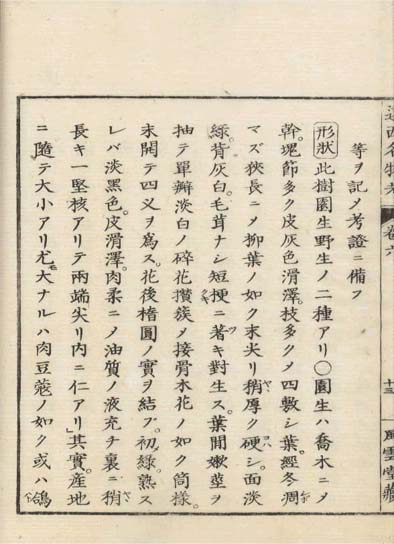 遠西名物考
卷六
十三
風雲堂藏
等ヲ記メ考證ニ備フ
形狀 此樹園生野生ノ二種アリ〇園生ハ喬木ニメ
幹。塊節多ク皮灰色滑澤。枝多クメ四敷シ葉。經冬凋
マズ狹長ニメ柳葉ノ如ク末尖リ稍厚ク硬シ。面淡
綠。背灰白。毛茸ナシ短梗ニ著キ對生ス。葉間嫩莖ヲ
抽テ單瓣淡白ノ碎花攢簇メ接骨木花ノ如ク筒樣。
末開テ四叉ヲ爲ス。花後橢圓ノ實ヲ結ブ。初綠。熟ス
レバ淡黑色。皮滑澤。肉柔ニメ油質ノ液充チ裏ニ稍
長キ一堅核アリテ兩端尖リ内ニ仁アリ」其實。產地
ニ隨テ大小アリ尤モ大ナルハ肉豆蔻ノ如ク或ハ鴿